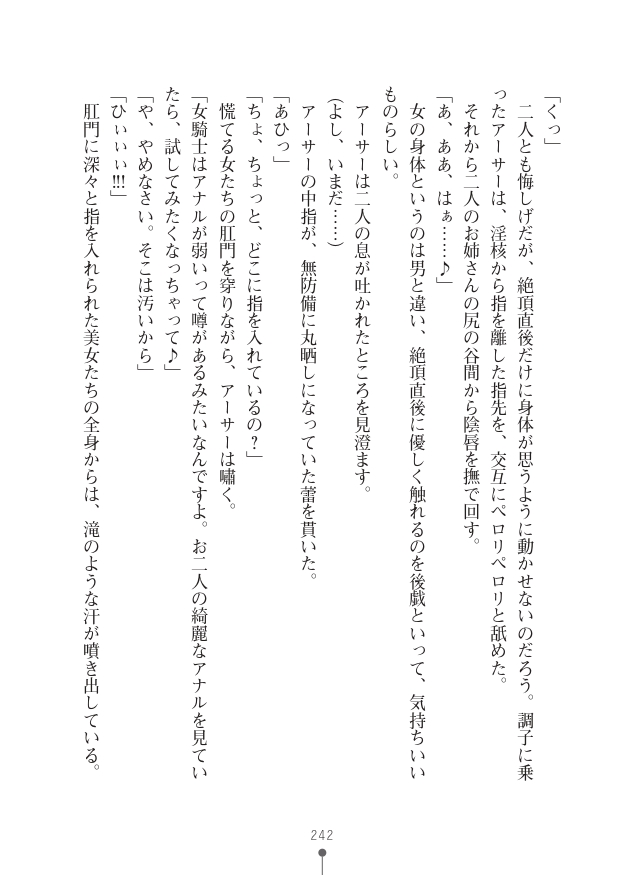 「くっ」
二人とも悔しげだが、絶頂直後だけに身体が思うように動かせないのだろう。調子に乗
ったアーサーは、淫核から指を離した指先を、交互にペロリペロリと舐めた。
それから二人のお姉さんの尻の谷間から陰唇を撫で回す。
「あ、ああ、はぁ……♪」
女の身体というのは男と違い、絶頂直後に優しく触れるのを後戯といって、気持ちいい
ものらしい。
アーサーは二人の息が吐かれたところを見澄ます。
(よし、いまだ……)
アーサーの中指が、無防備に丸晒しになっていた蕾を貫いた。
「あひっ」
「ちょ、ちょっと、どこに指を入れているの?」
慌てる女たちの肛門を穿りながら、アーサーは嘯く。
「女騎士はアナルが弱いって噂があるみたいなんですよ。お二人の綺麗なアナルを見てい
たら、試してみたくなっちゃって♪」
「や、やめなさい。そこは汚いから」
「ひぃぃぃ!!!」
肛門に深々と指を入れられた美女たちの全身からは、滝のような汗が噴き出している。
242